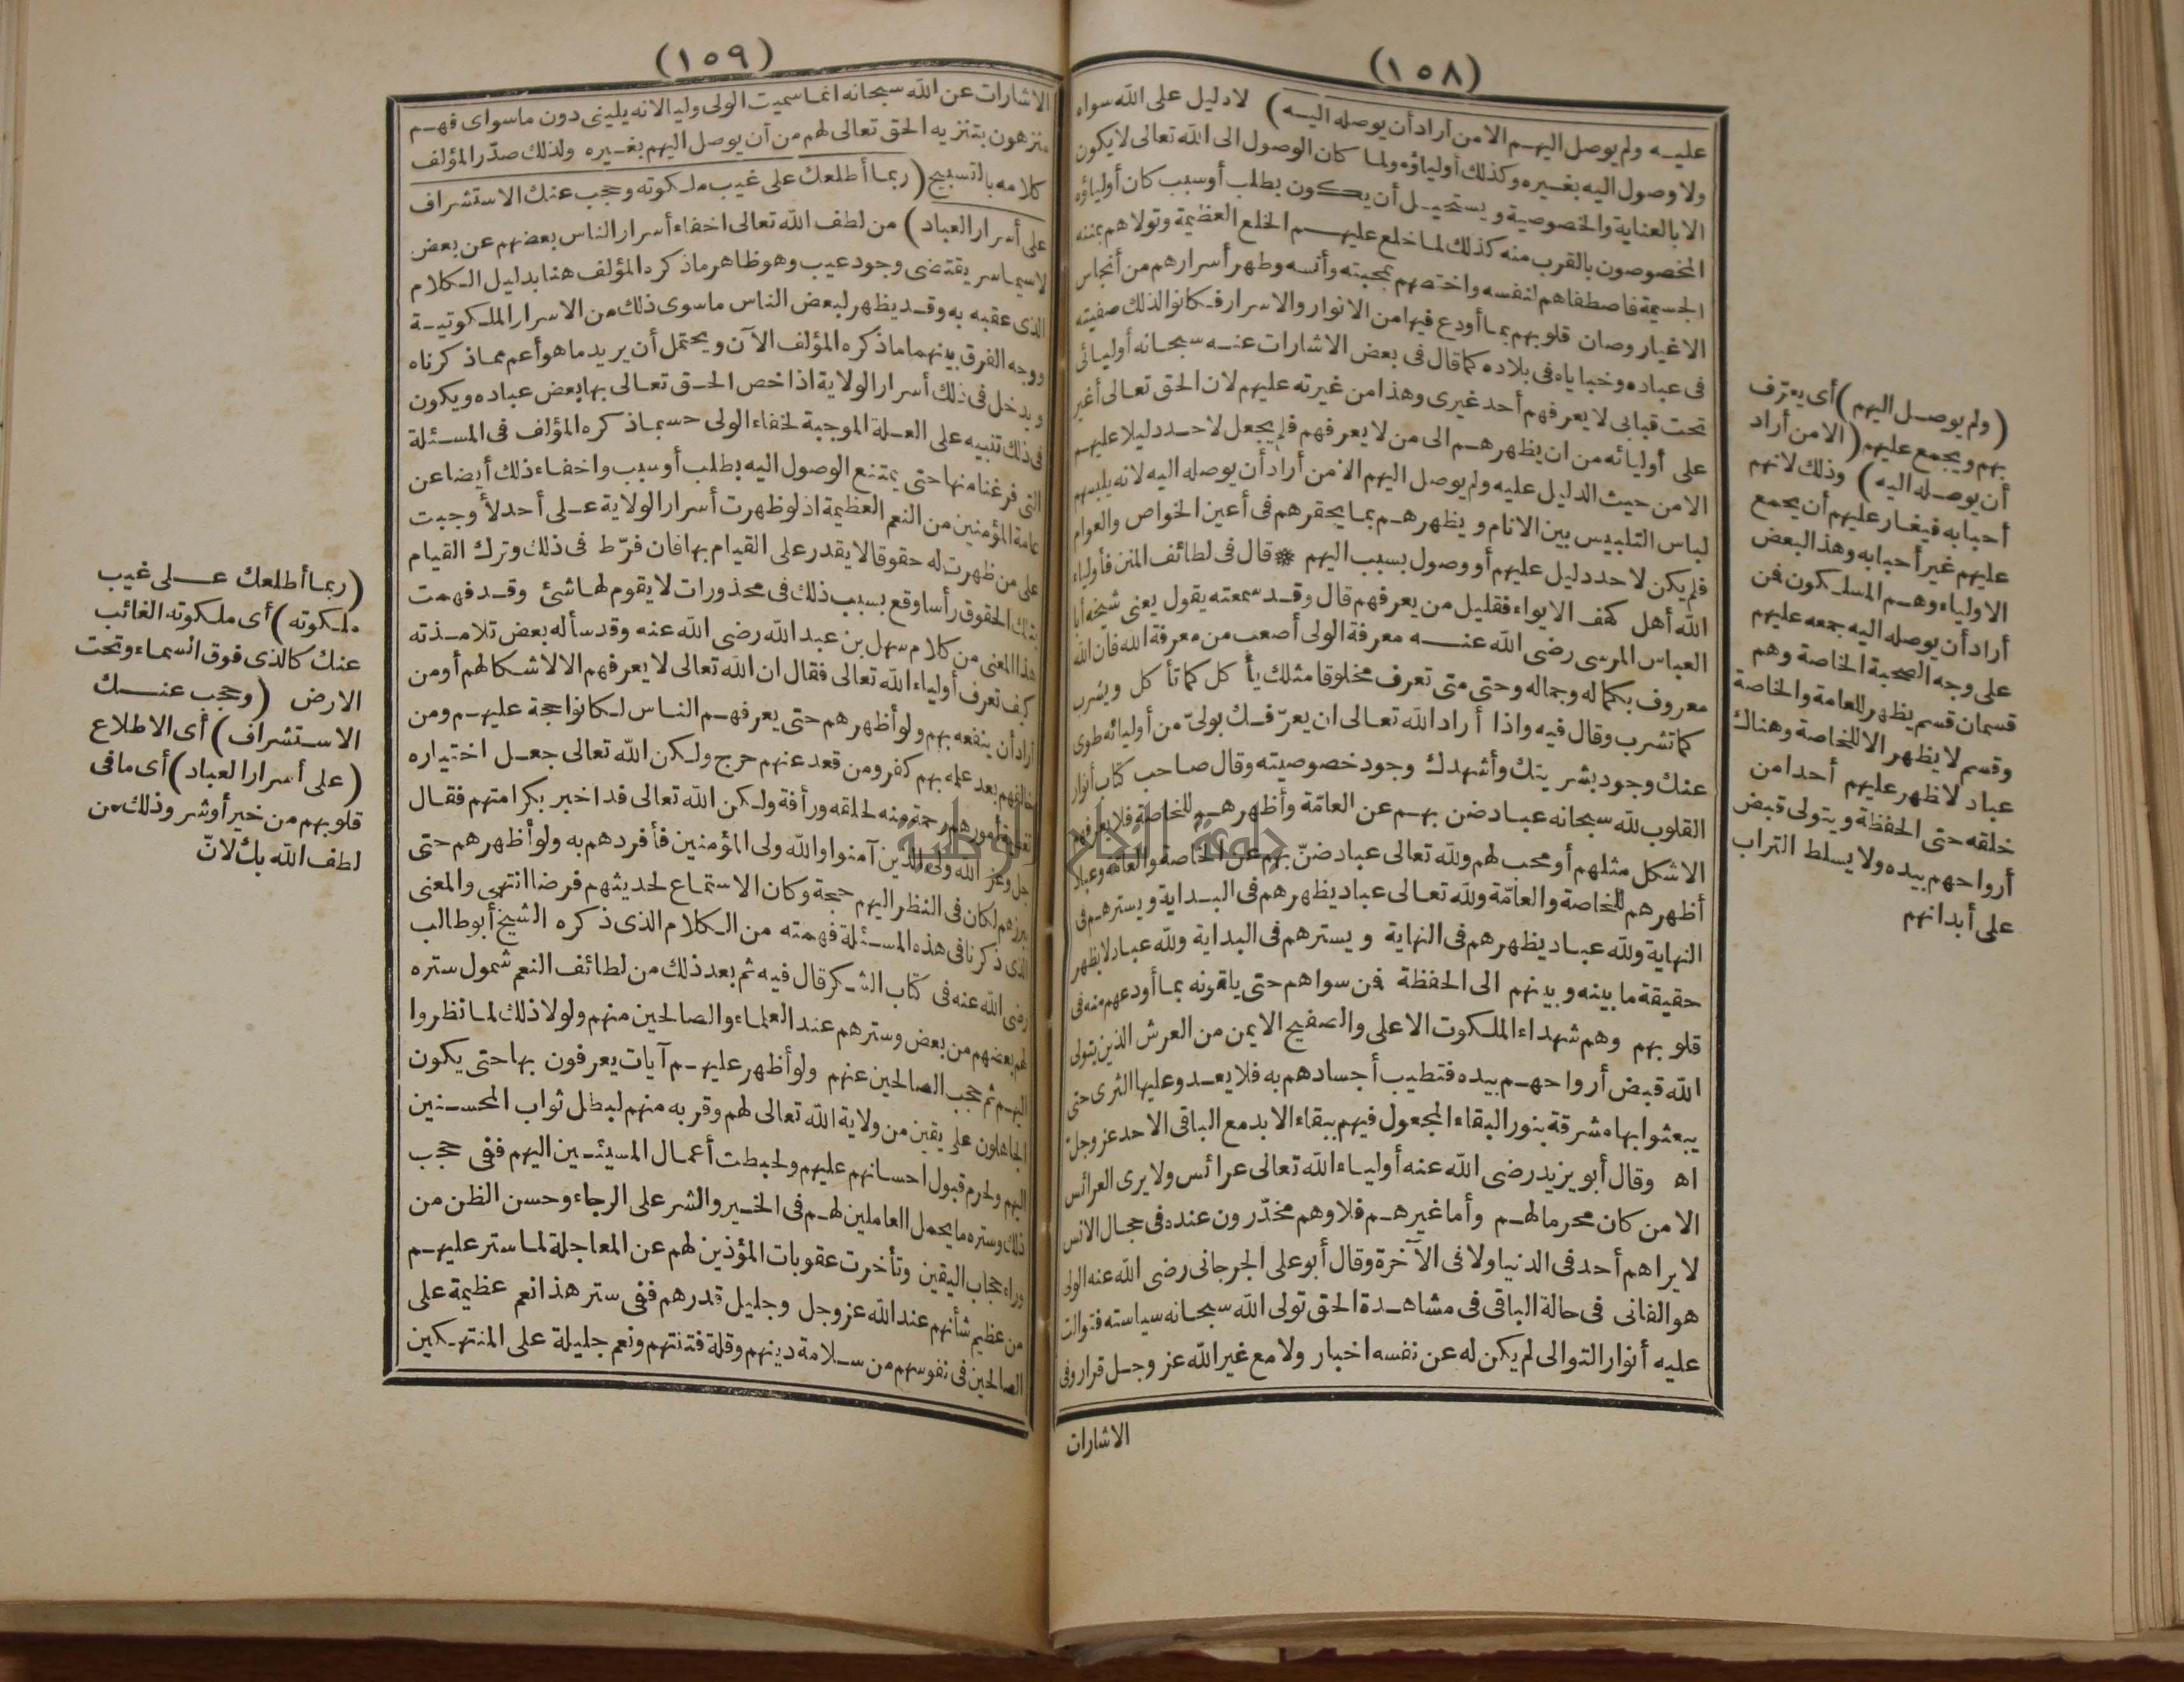 (١٥٨)
عليه ولم يوصل اليهم الامن أراد أن يوصله اليه) لا دليل على الله سواه
ولا وصول اليه بغيره وكذلك أولياؤه ولما كان الوصول الى الله تعالى لا يكون
الا بالعناية والخصوصية ويستحيل أن يكون بطلب أو سبب كان أولياؤه
المخصوصون بالقرب منه كذلك لما خلع عليهم الخلع العظيمة وتولاهم بمننه
الجسيمة فاصطفاهم لنفسه واختصهم بمحبته وأنسه وطهر أسرارهم من أنجاس
الاغيار وصان قلوبهم بما أودع فيها من الانوار والاسرار فكانوا لذلك صفيته
فى عباده وخباياه فى بلاده كما قال فى بعض الاشارات عنه سبحانه أوليائى
تحت قبابى لا يعرفهم أحد غيرى وهذا من غيرته عليهم لان الحق تعالى أغير
على أوليائه من ان يظهرهم الى من لا يعرفهم فلم يجعل لاحد دليلا عليهم
الامن حيث الدليل عليه ولم يوصل اليهم الا من أراد أن يوصله اليه لانه يلبسهم
لباس التلبيس بين الانام ويظهرهم بما يحقرهم فى أعين الخواص والعوام
فلم يكن لاحد دليل عليهم أو وصول بسبب اليهم * قال فى لطائف المنن فأولياء
الله أهل كهف الايواء فقليل من يعرفهم قال وقد سمعته يقول يعنى شيخه أبا
العباس المرسى رضى الله عنه معرفة الولى أصعب من معرفة الله فان الله
معروف بكماله وجماله وحتى متى تعرف مخلوقا مثلك يأكل كما تأكل ويشرب
كما تشرب وقال فيه واذا أراد الله تعالى ان يعرّفك بولىّ من أوليائه طوى
عنك وجود بشريتك وأشهدك وجود خصوصيته وقال صاحب كتاب أنوار
القلوب لله سبحانه عباد ضن بهم عن العامّة وأظهرهم للخاصة فلا يعرفهم
الا شكل مثلهم أو محب لهم ولله تعالى عباد ضنّ بهم عن الخاصة والعامّة وعباد
أظهرهم للخاصة والعامّة ولله تعالى عباد يظهرهم فى البداية ويسترهم فى
النهاية ولله عباد يظهرهم فى النهاية ويسترهم فى البداية ولله عباد لا يظهر
حقيقة ما بينه وبينهم الى الحفظة فمن سواهم حتى يلقونه بما أودعهم منه فى
قلوبهم وهم شهداء الملكوت الاعلى والصفيح الايمن من العرش الذين يتولى
الله قبض أرواحهم بيده فتطيب أجسادهم به فلا يعدو عليها الثرى حتى
يبعثوا بها مشرقة بنور البقاء المجعول فيهم ببقاء الابد مع الباقى الاحد عز وجل
اه وقال أبو يزيد رضى الله عنه أولياء الله تعالى عرائس ولا يرى العرائس
الا من كان محرما لهم وأما غيرهم فلا وهم مخدّرون عنده فى حجال الانس
لا يراهم أحد فى الدنيا ولا فى الآخرة وقال أبو على الجرجانى رضى الله عنه الولى
هو الفانى فى حالة الباقى فى مشاهدة الحق تولى الله سبحانه سياسته فتوالت
عليه أنوار التوالى لم يكن له عن نفسه اخبار ولا مع غير الله عز وجل قرار وفى
الاشارات
(ولم يوصل اليهم) أى يعرّف
بهم ويجمع عليهم (الا من أراد
أن يوصله اليه) وذلك لانهم
أحبابه فيغار عليهم أن يجمع
عليهم غير أحبابه وهذا البعض
الاولياء وهم المسلكون فمن
أراد أن يوصله اليه جمعه عليهم
على وجه الصحبة الخاصة وهم
قسمان قسم يظهر للعامة والخاصة
وقسم لا يظهر الا للخاصة وهناك
عباد لا ظهر عليهم أحدا من
خلقه حتى الحفظة ويتولى قبض
أرواحهم بيده ولا يسلط التراب
على أبدانهم
(١٥٩)
الاشارات عن الله سبحانه انما سميت الولى وليا لانه يلينى دون ما سواى فهم
منزهون بتنزيه الحق تعالى لهم من أن يوصل اليهم بغيره ولذلك صدّر المؤلف
كلامه بالتسبيح (ربما أطلعك على غيب ملكوته وحجب عنك الاستشراف
على أسرار العباد) من لطف الله تعالى اخفاء أسرار الناس بعضهم عن بعض
لا سيما سر يقتضى وجود عيب وهو ظاهر ما ذكره المؤلف هنا بدليل الكلام
الذى عقبه به وقد يظهر لبعض الناس ما سوى ذلك من الاسرار الملكوتية
ووجه الفرق بينهما ما ذكره المؤلف الآن ويحتمل أن يريد ما هو أعم مما ذكرناه
ويدخل فى ذلك أسرار الولاية اذا خص الحق تعالى بها بعض عباده ويكون
فى ذلك تنبيه على العلة الموجبة لخفاء الولى حسبما ذكره المؤلف فى المسئلة
التى فرغنا منها حتى يمتنع الوصول اليه بطلب أو سبب واخفاء ذلك أيضا عن
عامة المؤمنين من النعم العظيمة اذ لو ظهرت أسرار الولاية على أحد لأوجبت
على من ظهرت له حقوقا لا يقدر على القيام بها فان فرّط فى ذلك وترك القيام
بتلك الحقوق رأسا وقع بسبب ذلك فى محذورات لا يقوم لها شئ وقد فهمت
هذا المعنى من كلام سهل بن عبد الله رضى الله عنه وقد سأله بعض تلامذته
كيف تعرف أولياء الله تعالى فقال ان الله تعالى لا يعرفهم الا لاشكالهم أو من
أراد أن ينفعه بهم ولو أظهرهم حتى يعرفهم الناس لكانوا حجة عليهم ومن
خالفهم بعد علمه بهم كفر ومن قعد عنهم حرج ولكن الله تعالى جعل اختياره
تغطية أمورهم رحمة منه لخلقه ورأفة ولكن الله تعالى قد اخبر بكرامتهم فقال
جل وعز الله ولى الذين آمنوا والله ولى المؤمنين فأفردهم به ولو أظهرهم حتى
يبرزهم لكان فى النظر اليهم حجة وكان الاستماع لحديثهم فرضا انتهى والمعنى
الذى ذكرنا فى هذه المسئلة فهمته من الكلام الذى ذكره الشيخ أبو طالب
رضى الله عنه فى كتاب الشكر قال فيه ثم بعد ذلك من لطائف النعم شمول ستره
لهم بعضهم من بعض وسترهم عند العلماء والصالحين منهم ولولا ذلك لما نظروا
اليهم ثم حجب الصالحين عنهم ولو أظهر عليهم آيات يعرفون بها حتى يكون
الجاهلون على يقين من ولاية الله تعالى لهم وقربه منهم لبطل ثواب المحسنين
اليهم ولحرم قبول احسانهم عليهم ولحبطت أعمال المسيئين اليهم ففى حجب
ذلك وستره ما يحمل العاملين لهم فى الخير والشر على الرجاء وحسن الظن من
وراء حجاب اليقين وتأخرت عقوبات المؤذين لهم عن المعاجلة لما ستر عليهم
من عظيم شأنهم عند الله عز وجل وجليل قدرهم ففى ستر هذا نعم عظيمة على
الصالحين فى نفوسهم من سلامة دينهم وقلة فتنتهم ونعم جليلة على المنتهكين
(ربما أطلعك على غيب
ملكوته) أى ملكوته الغائب
عنك كالذى فوق السماء وتحت
الارض (وحجب عنك
الاستشراف) أى الاطلاع
(على أسرار العباد) أى ما فى
قلوبهم من خير أو شر وذلك من
لطف الله بك لانّ